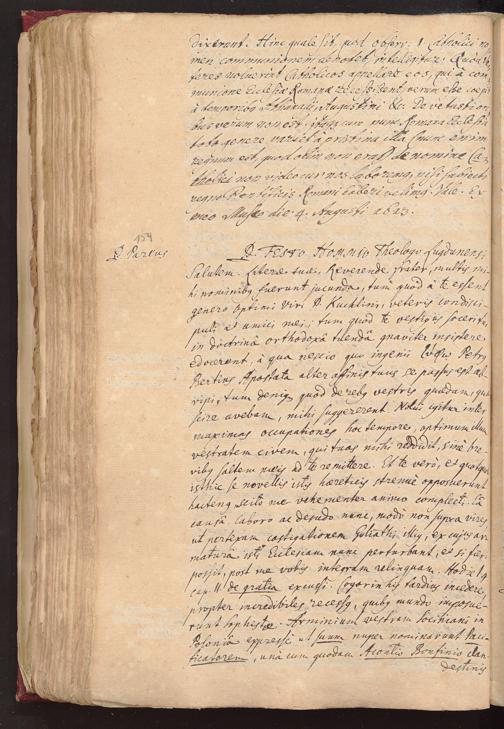 dixerunt. Hinc quale sit, quod observ: 1 Catholici no
men communionem
feres voluerint Catholicos appellare eos, qui à com
munione Ecclesiæ Romanæ recessissent, verum esse
à temporibus Augustini &c: De vetustiori
bus verum non est: itaque cum nunc Romana Ecclesia
toto genere variet à pristina illa (nunc enim
regnum est, quod olim non erat) de nomine Ca
tholici non video cur nos laboremus, nisi subjecti
regno Pontificis Romani haberi velimus. Vale. Ex
meo Musæo die 4. Augusti 1613.
454
D. Pareus
D. Festo Hommio Theologo Lugdunensi
Salutem. Literæ tuæ, Reverende frater, multis mi
hi nominibus fuerunt jucundæ, tum quod à te essent
genero optimi viri D. Kuchlini, veteris condisci
puli et amici mei; tum quod te vestigiis soceri tui
in doctrina orthodoxa tuenda gnaviter insistere
edocerent, à qua nescio quo ingenii Petrus
Bertius Apostata alter affinis tuus se passus est ab
ripi, tum denique quod de rebus vestris quædam, quæ
scire avebam, mihi suggererent. Nolui igitur inter
maximas occupationes hoc tempore, optimum illum
vestratem civem, qui tuas mihi reddidit, sine bre
vibus saltem meis ad te remittere. Et te verò, et quotquot
isthic se novellis istis hæreticis strenuè opposuerunt
hactenus, scito me vehementer animo complecti. Ea
causa laboro ac desudo nunc, modò non supra vires,
ut pertexam castigationem Goliathi illius, ex cujus ar
matura isti Ecclesiam nunc perturbant, et si fieri
possit, post me vobis integram relinquam. Hodie
cap. 11 de gratia excussi. Cogor in his tardius incedere,
propter incredibiles recessus, quibus mundo imposue
runt sophistæ. Arminium vestrum Sociniani in
Polonia expressè ut suum nuper nominarunt Paci
ficatorem, unà cum quodam Acontio Bonfinio clan
destinis